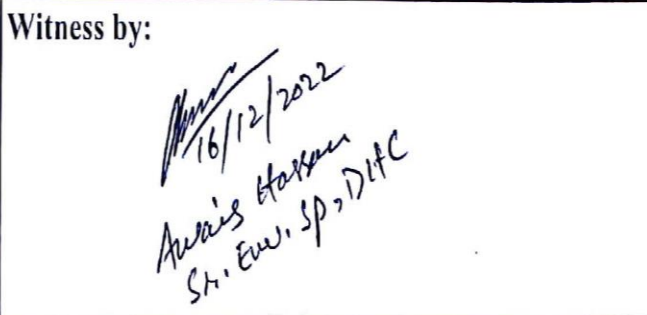 Witness by:
16/12/2022
Awais Hassan
Sr. Env. Sp, DHC